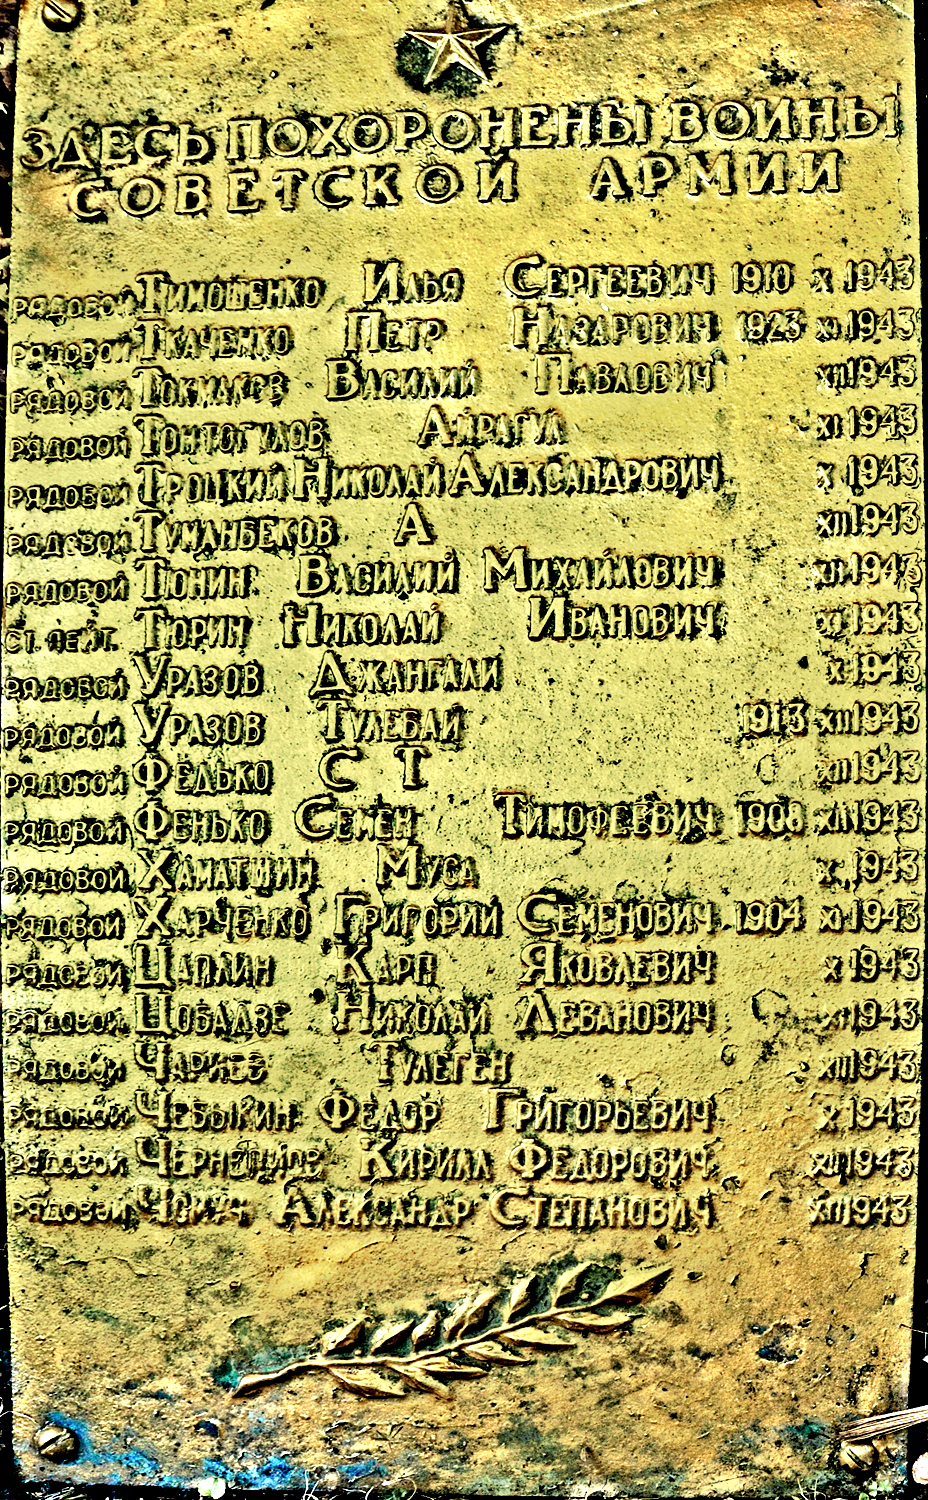 ЗДЕСЬ ПОХОРОНЕНЫ ВОИНЫ
СОВЕТСКОЙ АРМИИ
РЯДОВОЙ ТИМОШЕНКО ИЛЬЯ СЕРГЕЕВИЧ 1910 X 1943
РЯДОВОЙ ТКАЧЕНКО ПЕТР НАЗАРОВИЧ 1923 XI 1943
РЯДОВОЙ ТОКМАКОВ ВАСИЛИЙ ПАВЛОВИЧ XII 1943
РЯДОВОЙ ТОНТОГУЛОВ АЙРАГУЛ XI 1943
РЯДОВОЙ ТРОЦКИЙ НИКОЛАЙ АЛЕКСАНДРОВИЧ X 1943
РЯДОВОЙ ТУМАНБЕКОВ А XII 1943
РЯДОВОЙ ТЮНИН ВАСИЛИЙ МИХАЙЛОВИЧ XI 1943
СТ. ЛЕЙТ. ТЮРИН НИКОЛАЙ ИВАНОВИЧ XI 1943
РЯДОВОЙ УРАЗОВ ДЖАНГАЛИ X 1943
РЯДОВОЙ УРАЗОВ ТУЛЕБАЙ 1913 XII 1943
РЯДОВОЙ ФЕДЬКО С Т XII 1943
РЯДОВОЙ ФЕНЬКО СЕМЕН ТИМОФЕЕВИЧ 1908 XII 1943
РЯДОВОЙ ХАМАТШИН МУСА X 1943
РЯДОВОЙ ХАРЧЕНКО ГРИГОРИЙ СЕМЕНОВИЧ 1904 XI 1943
РЯДОВОЙ ЦАПЛИН КАРП ЯКОВЛЕВИЧ X 1943
РЯДОВОЙ ЦОБАДЗЕ НИКОЛАЙ ЛЕВАНОВИЧ XI 1943
РЯДОВОЙ ЧАРИЕВ ТУЛЕГЕН XII 1943
РЯДОВОЙ ЧЕБЫКИН ФЕДОР ГРИГОРЬЕВИЧ X 1943
РЯДОВОЙ КИРИЛЛ ФЕДОРОВИЧ XII 1943
РЯДОВОЙ АЛЕКСАНДР СТЕПАНОВИЧ XII 1943